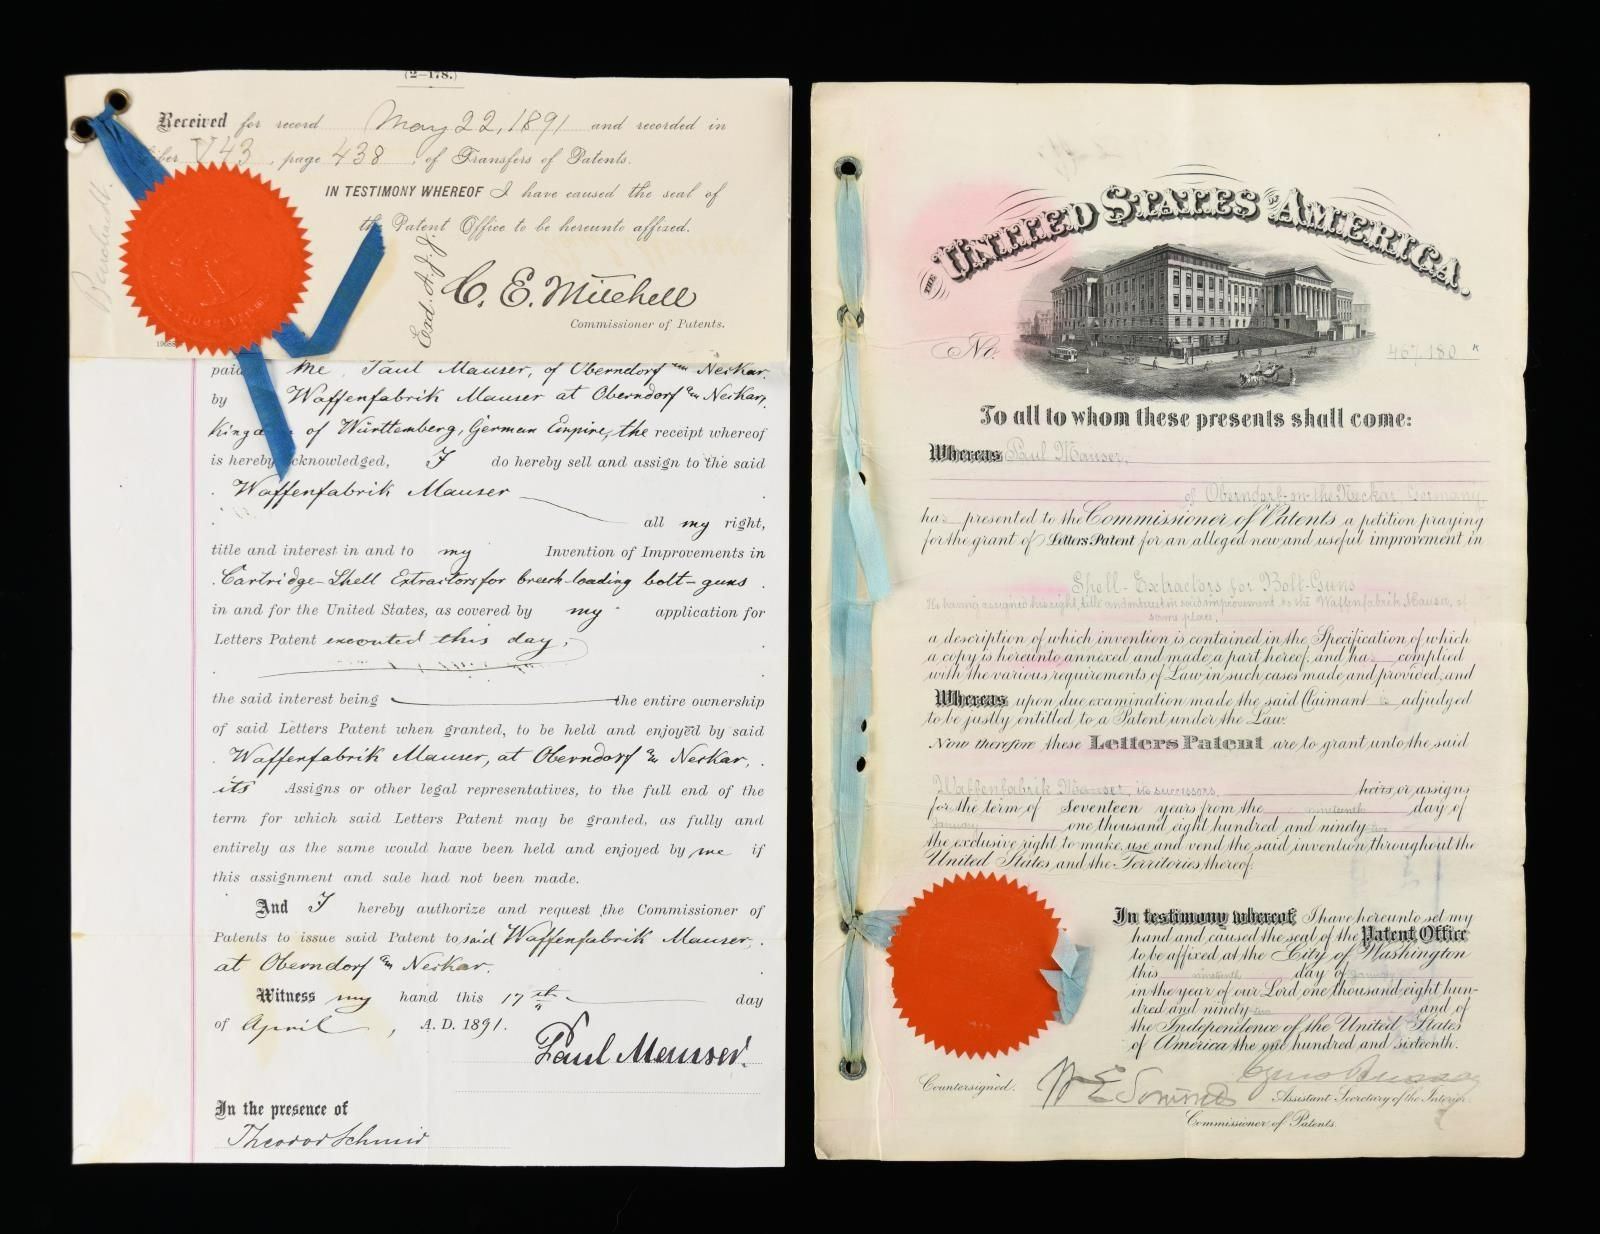 (2—178.)
Received for record May 22, 1891 and recorded in
Liber V43, page 438, of Transfers of Patents.
IN TESTIMONY WHEREOF I have caused the seal of
the Patent Office to be hereunto affixed.
Exd. A.J.J.
C. E. Mitchell
Commissioner of Patents.
paid me, Paul Mauser, of Oberndorf am Neckar.
by Waffenfabrik Mauser at Oberndorf am Neckar,
Kingdom of Württemberg, German Empire, the receipt whereof
is hereby acknowledged, I do hereby sell and assign to the said
Waffenfabrik Mauser
all my right,
title and interest in and to my Invention of Improvements in
Cartridge-Shell Extractors for breech-loading bolt-guns
in and for the United States, as covered by my application for
Letters Patent executed this day;
the said interest being the entire ownership
of said Letters Patent when granted, to be held and enjoyed by said
Waffenfabrik Mauser, at Oberndorf am Neckar,
its Assigns or other legal representatives, to the full end of the
term for which said Letters Patent may be granted, as fully and
entirely as the same would have been held and enjoyed by me if
this assignment and sale had not been made.
And I hereby authorize and request the Commissioner of
Patents to issue said Patent to said Waffenfabrik Mauser,
at Oberndorf am Neckar.
Witness my hand this 17th day
of April, A. D. 1891.
Paul Mauser.
In the presence of
Theodor Schmid
THE UNITED STATES OF AMERICA.
No. 467,180
To all to whom these presents shall come:
Whereas Paul Mauser,
of Oberndorf-on-the-Neckar, Germany,
has presented to the Commissioner of Patents a petition praying
for the grant of Letters Patent for an alleged new and useful improvement in
Shell-Extractors for Bolt-Guns
He having assigned his right, title and interest in said improvement to the Waffenfabrik Mauser, of
same place,
a description of which invention is contained in the Specification of which
a copy is hereunto annexed and made a part hereof, and has complied
with the various requirements of Law in such cases made and provided, and
Whereas upon due examination made the said Claimant is adjudged
to be justly entitled to a Patent under the Law.
Now therefore these Letters Patent are to grant unto the said
Waffenfabrik Mauser, its successors, heirs or assigns
for the term of Seventeen years from the nineteenth day of
January one thousand eight hundred and ninety-two
the exclusive right to make, use and vend the said invention throughout the
United States and the Territories thereof.
In testimony whereof I have hereunto set my
hand and caused the seal of the Patent Office
to be affixed at the City of Washington
this nineteenth day of January
in the year of our Lord one thousand eight hun-
dred and ninety-two and of
the Independence of the United States
of America the one hundred and sixteenth.
Countersigned.
Assistant Secretary of the Interior.
Commissioner of Patents.